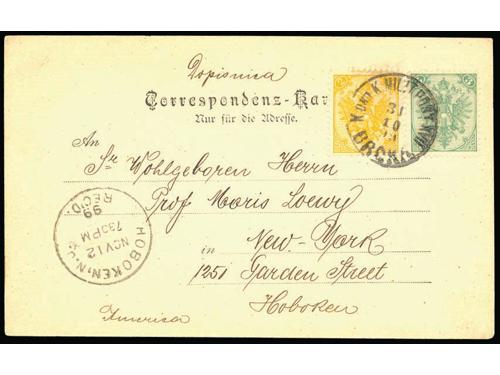 Dopisnica
Correspondenz-Kar
Nur für die Adresse.
An
Sr Wohlgeboren Herrn
Prof Moris Loewy
in New-York
1251 Garden Street
Hoboken
America
K UND K MILIT POST
31
10
BRCKA
HOBOKEN, N.J.
NOV 12
730 PM
99
REC'D.